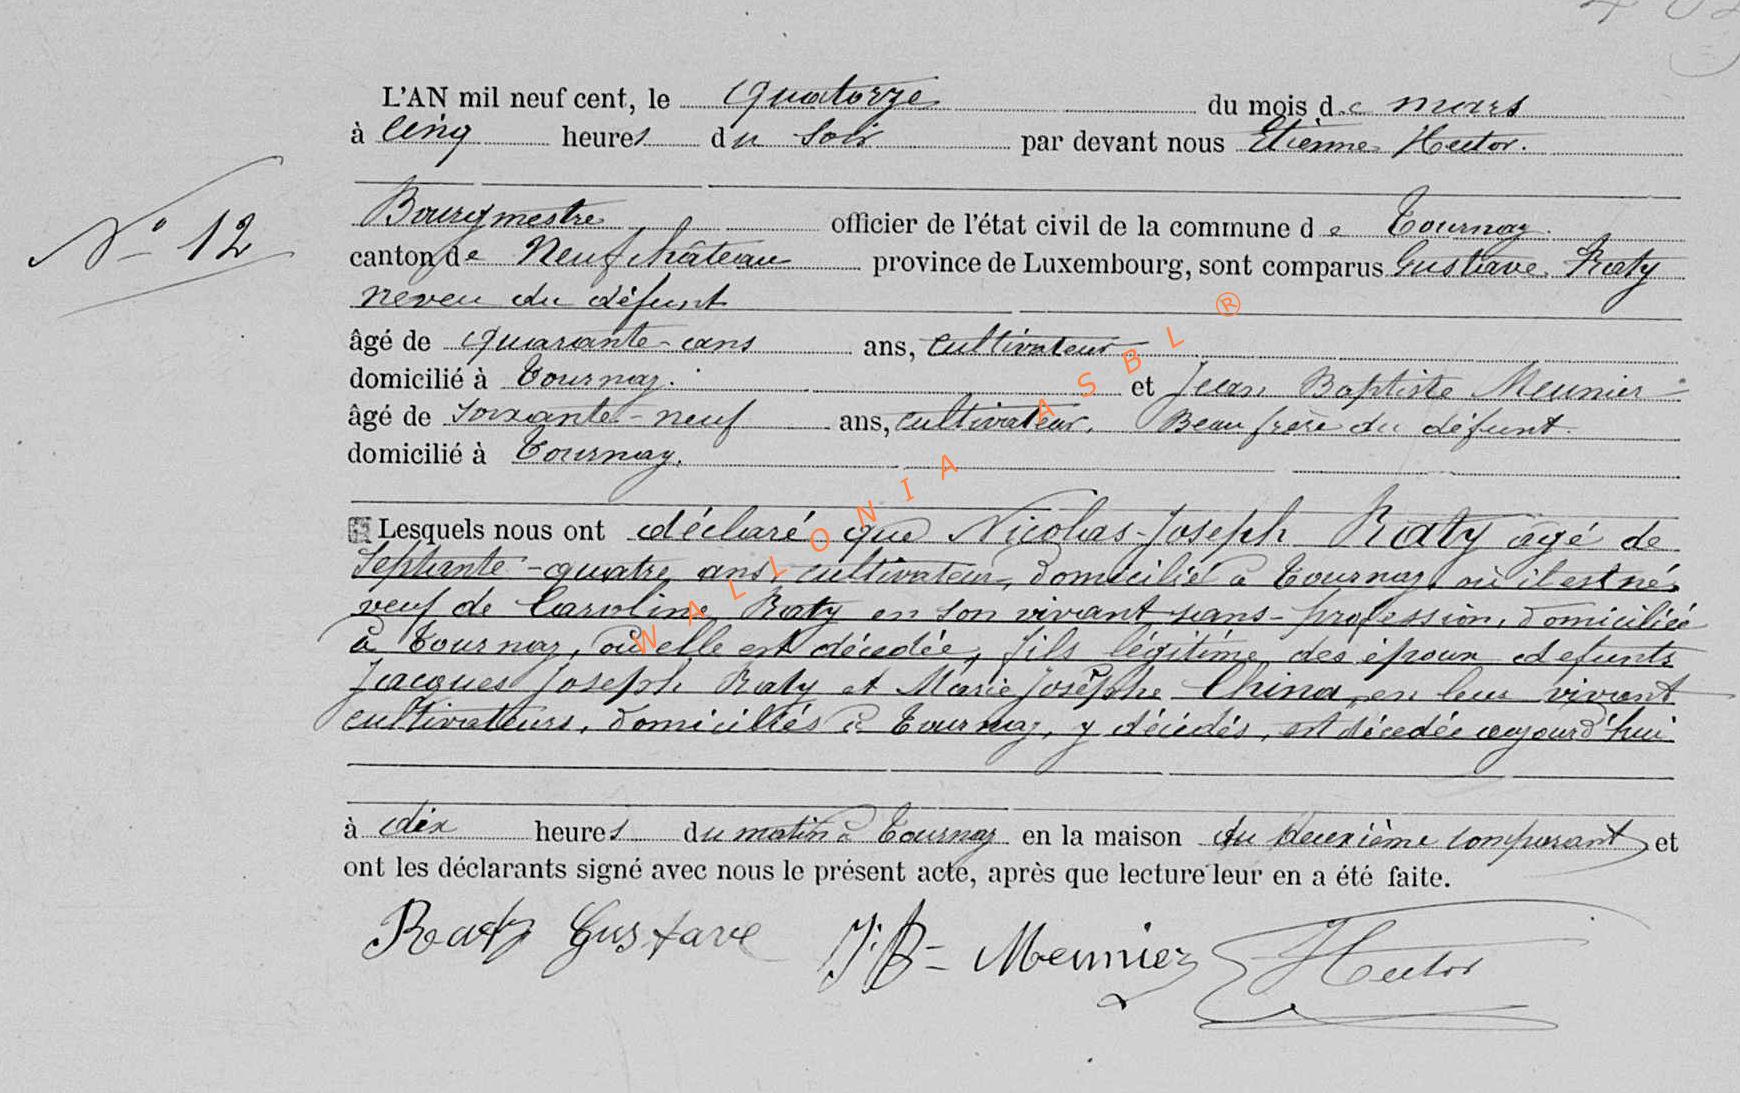 L'AN mil neuf cent, le quatorze du mois de mars
à cinq heures du soir par devant nous Etienne Hector.
N° 12
Bourgmestre officier de l'état civil de la commune de Tournay.
canton de Neufchâteau province de Luxembourg, sont comparus Gustave Raty
neveu du défunt
âgé de quarante-ans ans, cultivateur
domicilié à Tournay. et Jean Baptiste Meunier
âgé de soixante-neuf ans, cultivateur, Beau frère du défunt.
domicilié à Tournay.
Lesquels nous ont déclaré que Nicolas-Joseph Raty agé de
septante-quatre ans, cultivateur, domicilié à Tournay, où il est né,
veuf de Caroline Raty en son vivant sans-profession, domiciliée
à Tournay, où elle est décédée, fils légitime des époux defunts
Jacques Joseph Raty et Marie Josèphe China, en leur vivant
cultivateurs, domiciliés à Tournay, y décédés, est décédée aujourd'hui
à dix heures du matin à Tournay en la maison du deuxième comparant, et
ont les déclarants signé avec nous le présent acte, après que lecture leur en a été faite.
Raty Gustave J:B= Meunier Hector
WALLONIA ASBL ®